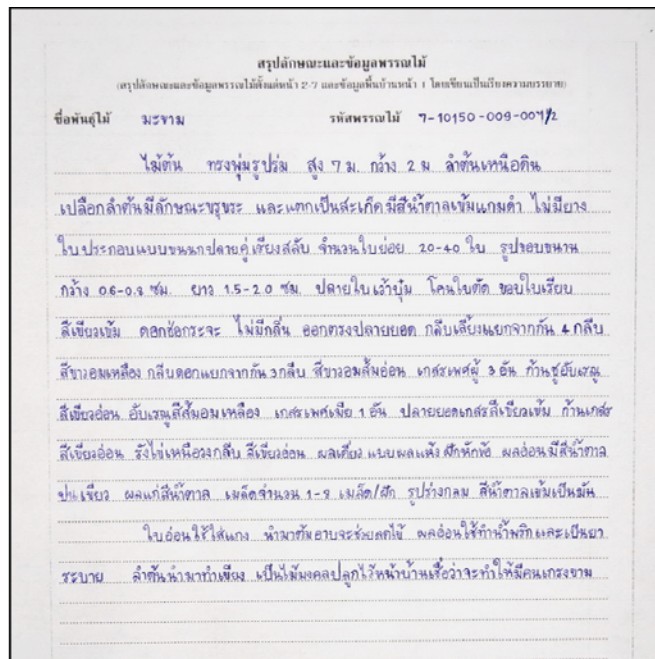 สรุปลักษณะและข้อมูลพรรณไม้
(สรุปลักษณะและข้อมูลพรรณไม้ตั้งแต่หน้า 2-7 และข้อมูลพื้นบ้านหน้า 1 โดยเขียนเป็นเรียงความบรรยาย)
ชื่อพันธุ์ไม้ มะขาม รหัสพรรณไม้ 7-10150-009-007/2
ไม้ต้น ทรงพุ่มรูปร่ม สูง 7 ม. กว้าง 2 ม ลำต้นเหนือดิน
เปลือกลำต้นมีลักษณะขรุขระ และแตกเป็นสะเก็ด มีสีน้ำตาลเข้มแกมดำ ไม่มียาง
ใบประกอบแบบขนนกปลายคู่เรียงสลับ จำนวนใบย่อย 20-40 ใบ รูปขอบขนาน
กว้าง 0.6-0.8 ซม. ยาว 1.5-2.0 ซม. ปลายใบเว้าบุ๋ม โคนใบตัด ขอบใบเรียบ
สีเขียวเข้ม ดอกช่อกระจะ ไม่มีกลิ่น ออกตรงปลายยอด กลีบเลี้ยงแยกจากกัน 4 กลีบ
สีขาวอมเหลือง กลีบดอกแยกจากกัน 3 กลีบ สีขาวอมส้มอ่อน เกสรเพศผู้ 3 อัน ก้านชูอับเรณู
สีเขียวอ่อน อับเรณูสีส้มอมเหลือง เกสรเพศเมีย 1 อัน ปลายยอดเกสรสีเขียวเข้ม ก้านเกสร
สีเขียวอ่อน รังไข่เหนือวงกลีบ สีเขียวอ่อน ผลเดี่ยว แบบผลแห้ง ฝักหักข้อ ผลอ่อนมีสีน้ำตาล
ปนเขียว ผลแก่สีน้ำตาล เมล็ดจำนวน 1-9 เมล็ด/ฝัก รูปร่างกลม สีน้ำตาลเข้มเป็นมัน
ใบอ่อนใช้ใส่แกง นำมาต้มอาบจะช่วยลดไข้ ผลอ่อนใช้ทำน้ำพริกและเป็นยา
ระบาย ลำต้นนำมาทำเขียง เป็นไม้มงคลปลูกไว้หน้าบ้านเชื่อว่าจะทำให้มีคนเกรงขาม